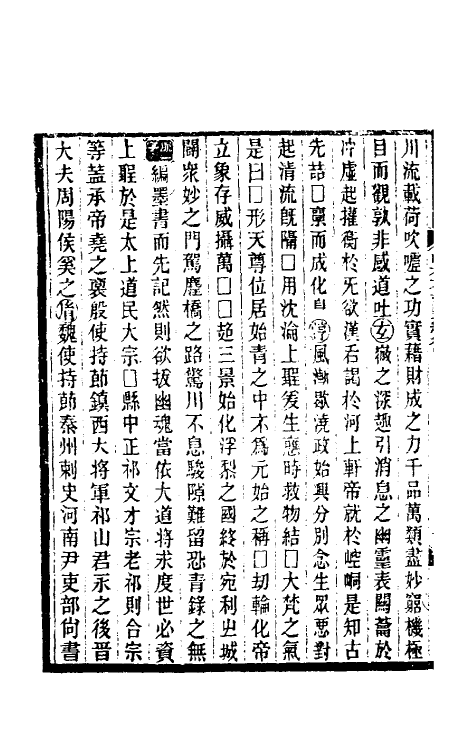 川流載荷吹噓之功實藉財成之力千品萬類盡妙窮機極
目而觀孰非感道吐玄微之深趣引消息之幽靈表闢蕭於
沖虛起權衡於死欲漢君謁於河上軒帝就於崆峒是知古
先喆□稟而成化自淳風漸歇澆政始興分別念生眾惡對
起清流旣隔□用沈淪上聖爰生愍時救物結□大梵之氣
是曰□形天尊位居始青之中不爲元始之稱□刼輪化帝
立象存威攝萬□□超三景始化浮梨之國終於宛利㞢城
闢衆妙之門駕塵橋之路驚川不息駿隙難留恐青錄之無
編墨書而先記然則欲拔幽魂當依大道將求度世必資
上聖於是太上道民大宗□縣中正祁文才宗老祁則合宗
等蓋承帝堯之裏殷使持節鎮西大將軍祁山君永之後晉
大夫周陽侯奚之脩魏使持節泰州刺史河南尹吏部尙書